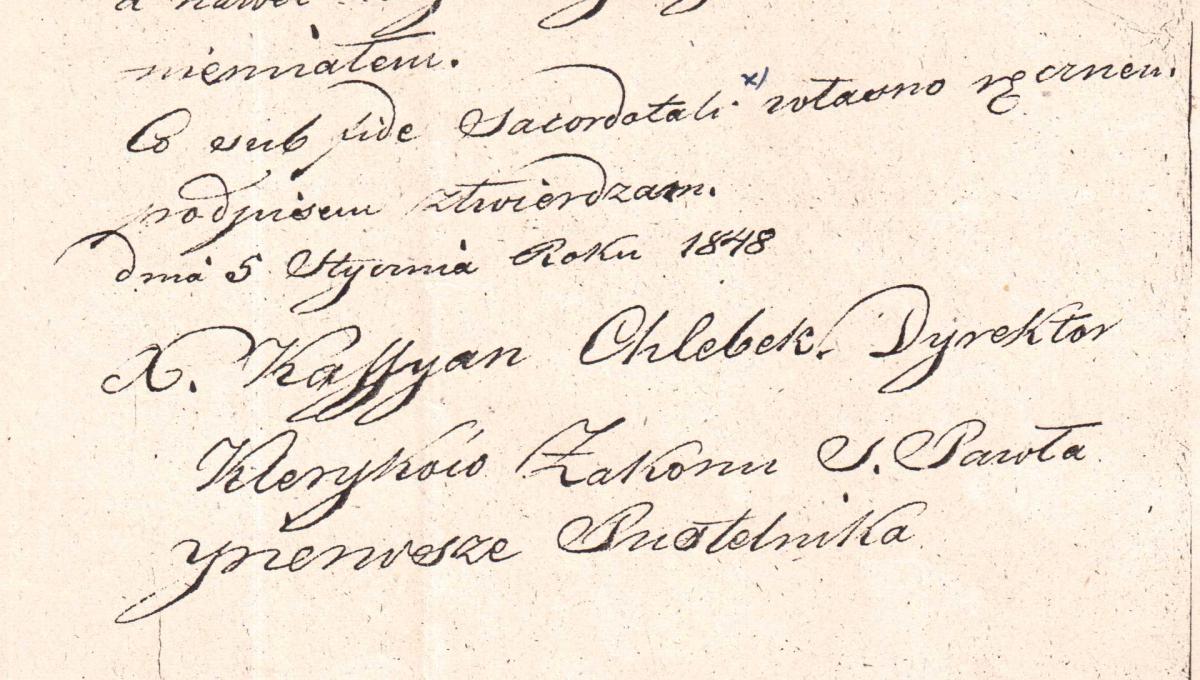 a nawet
mienniałem.
Co sub fide Sacerdotali x) własno ręcznem
podpisem ztwierdzam.
dnia 5 Stycznia Roku 1848
X. Kassyan Chlebek. Dyrektor
Kleryków Zakonu S. Pawła
pierwsze Pustelnika